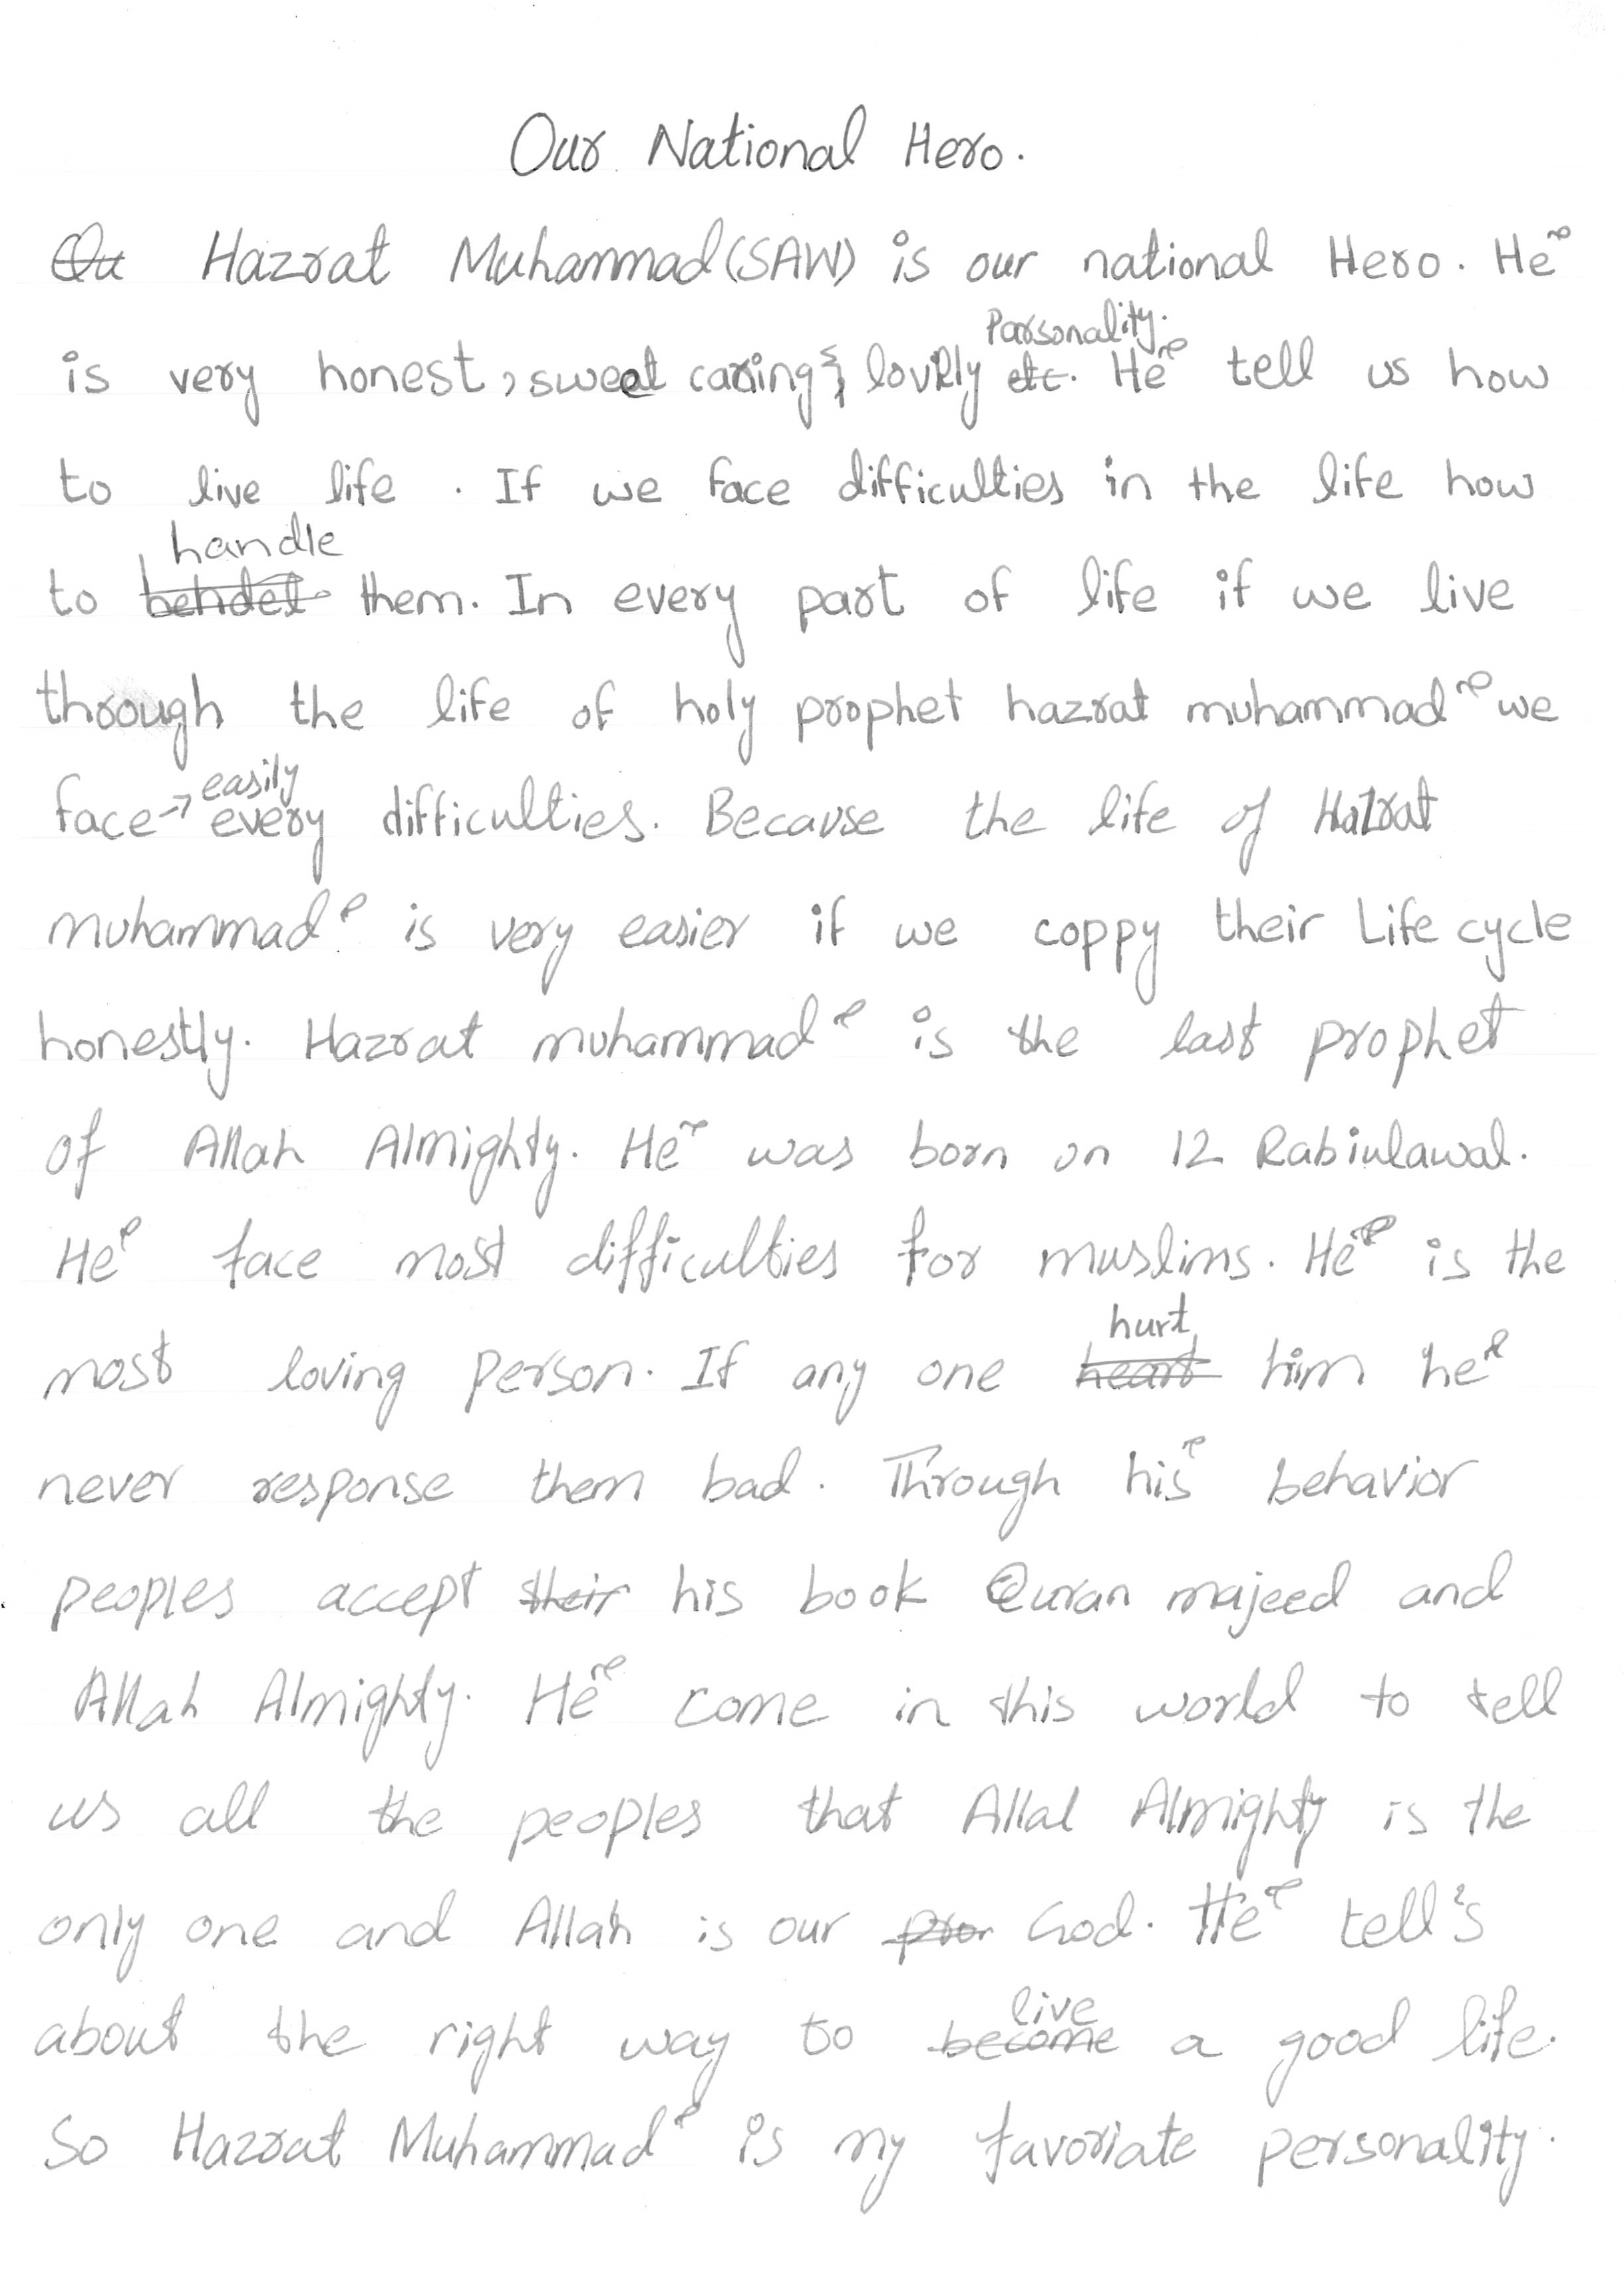 Our National Hero.
Hazrat Muhammad (SAW) is our national Hero. He
is very honest, sweet caring & lovely Parsonality. He tell us how
to live life. If we face difficulties in the life how
to handle them. In every part of life if we live
through the life of holy prophet hazrat muhammad we
face easily every difficulties. Because the life of Hazrat
muhammad is very easier if we coppy their Life cycle
honestly. Hazrat muhammad is the last prophet
of Allah Almighty. He was born on 12 Rabiulawal.
He face most difficulties for muslims. He is the
most loving person. If any one hurt him he
never response them bad. Through his behavior
peoples accept his book Quran majeed and
Allah Almighty. He come in this world to tell
us all the peoples that Allal Almighty is the
only one and Allah is our God. He tell's
about the right way to live a good life.
So Hazrat Muhammad is my favoriate personality.